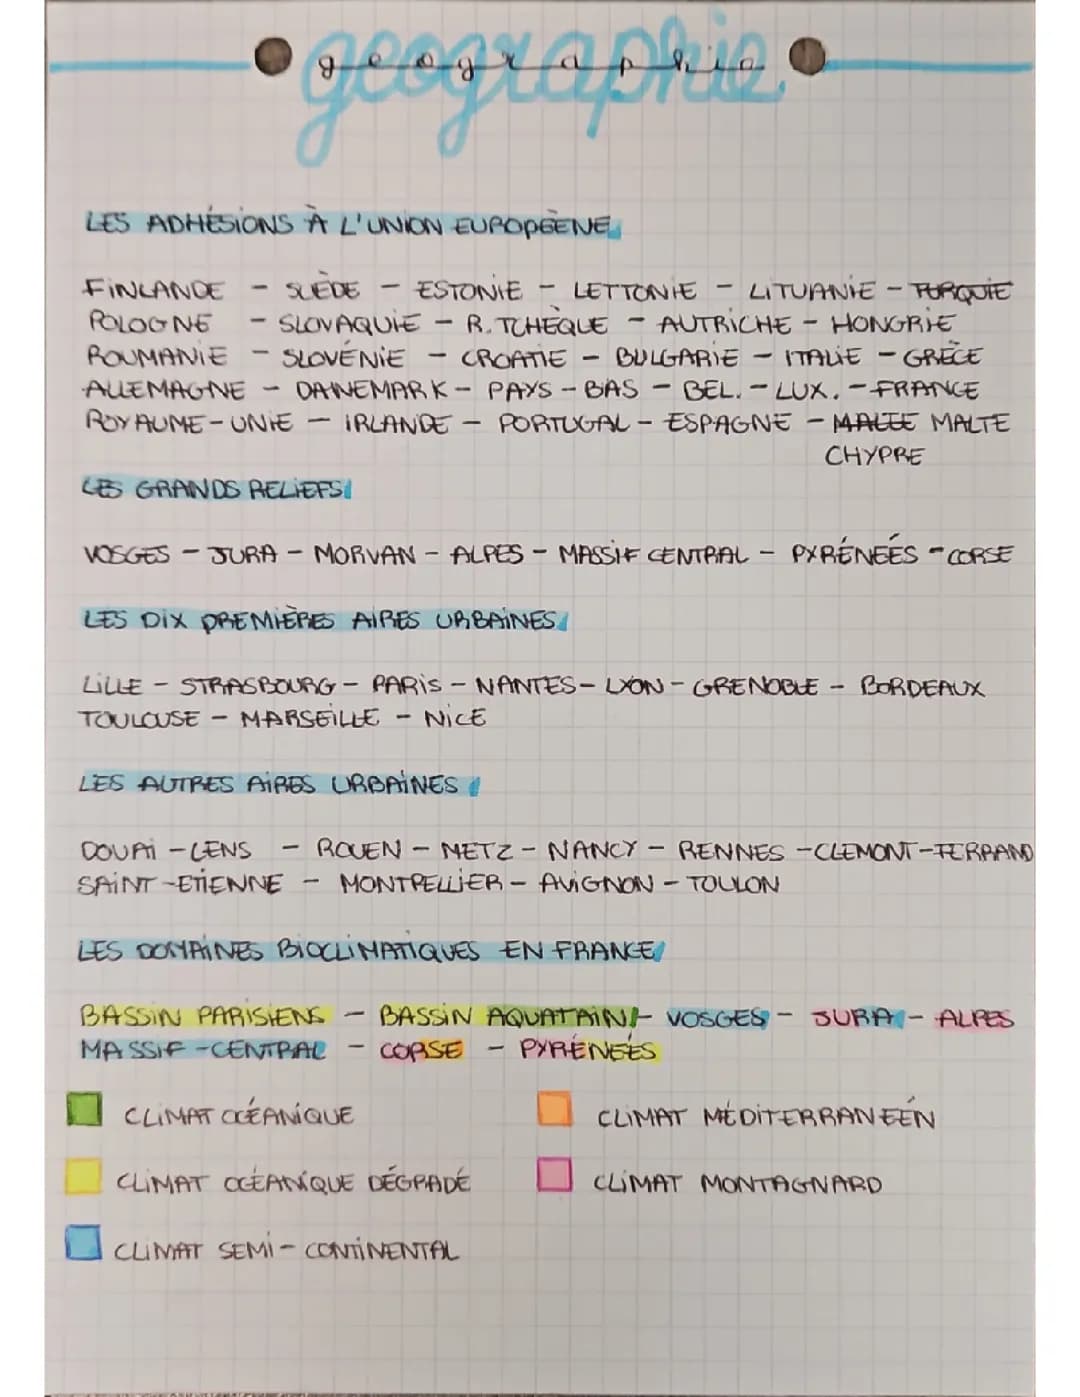 geographie
LES ADHÉSIONS À L'UNION EUROPÉENE
FINLANDE - SUÈDE - ESTONIE - LETTONIE - LITUANIE - TURQUIE
POLOGNE - SLOVAQUIE - R. TCHÈQUE - AUTRICHE - HONGRIE
ROUMANIE - SLOVÉNIE - CROATIE - BULGARIE - ITALIE - GRÈCE
ALLEMAGNE - DANEMARK - PAYS-BAS - BEL. - LUX. - FRANCE
ROYAUME-UNIE - IRLANDE - PORTUGAL - ESPAGNE - MALTE MALTE
CHYPRE
LES GRANDS RELIEFS
VOSGES - JURA - MORVAN - ALPES - MASSIF CENTRAL - PYRÉNEÉS - CORSE
LES DIX PREMIÈRES AIRES URBAINES
LILLE - STRASBOURG - PARIS - NANTES - LYON - GRENOBLE - BORDEAUX
TOULOUSE - MARSEILLE - NICE
LES AUTRES AIRES URBAINES
DOUAI - LENS - ROUEN - METZ - NANCY - RENNES - CLEMONT-FERRAND
SAINT-ETIENNE - MONTPELLIER - AVIGNON - TOULON
LES DOMAINES BIOCLIMATIQUES EN FRANCE
BASSIN PARISIENS - BASSIN AQUATAIN - VOSGES - JURA - ALPES
MASSIF-CENTRAL - CORSE - PYRÉNEÉS
CLIMAT OCÉANIQUE
CLIMAT MÉDITERRANEÉN
CLIMAT OCÉANIQUE DÉGRADÉ
CLIMAT MONTAGNARD
CLIMAT SEMI-CONTINENTAL